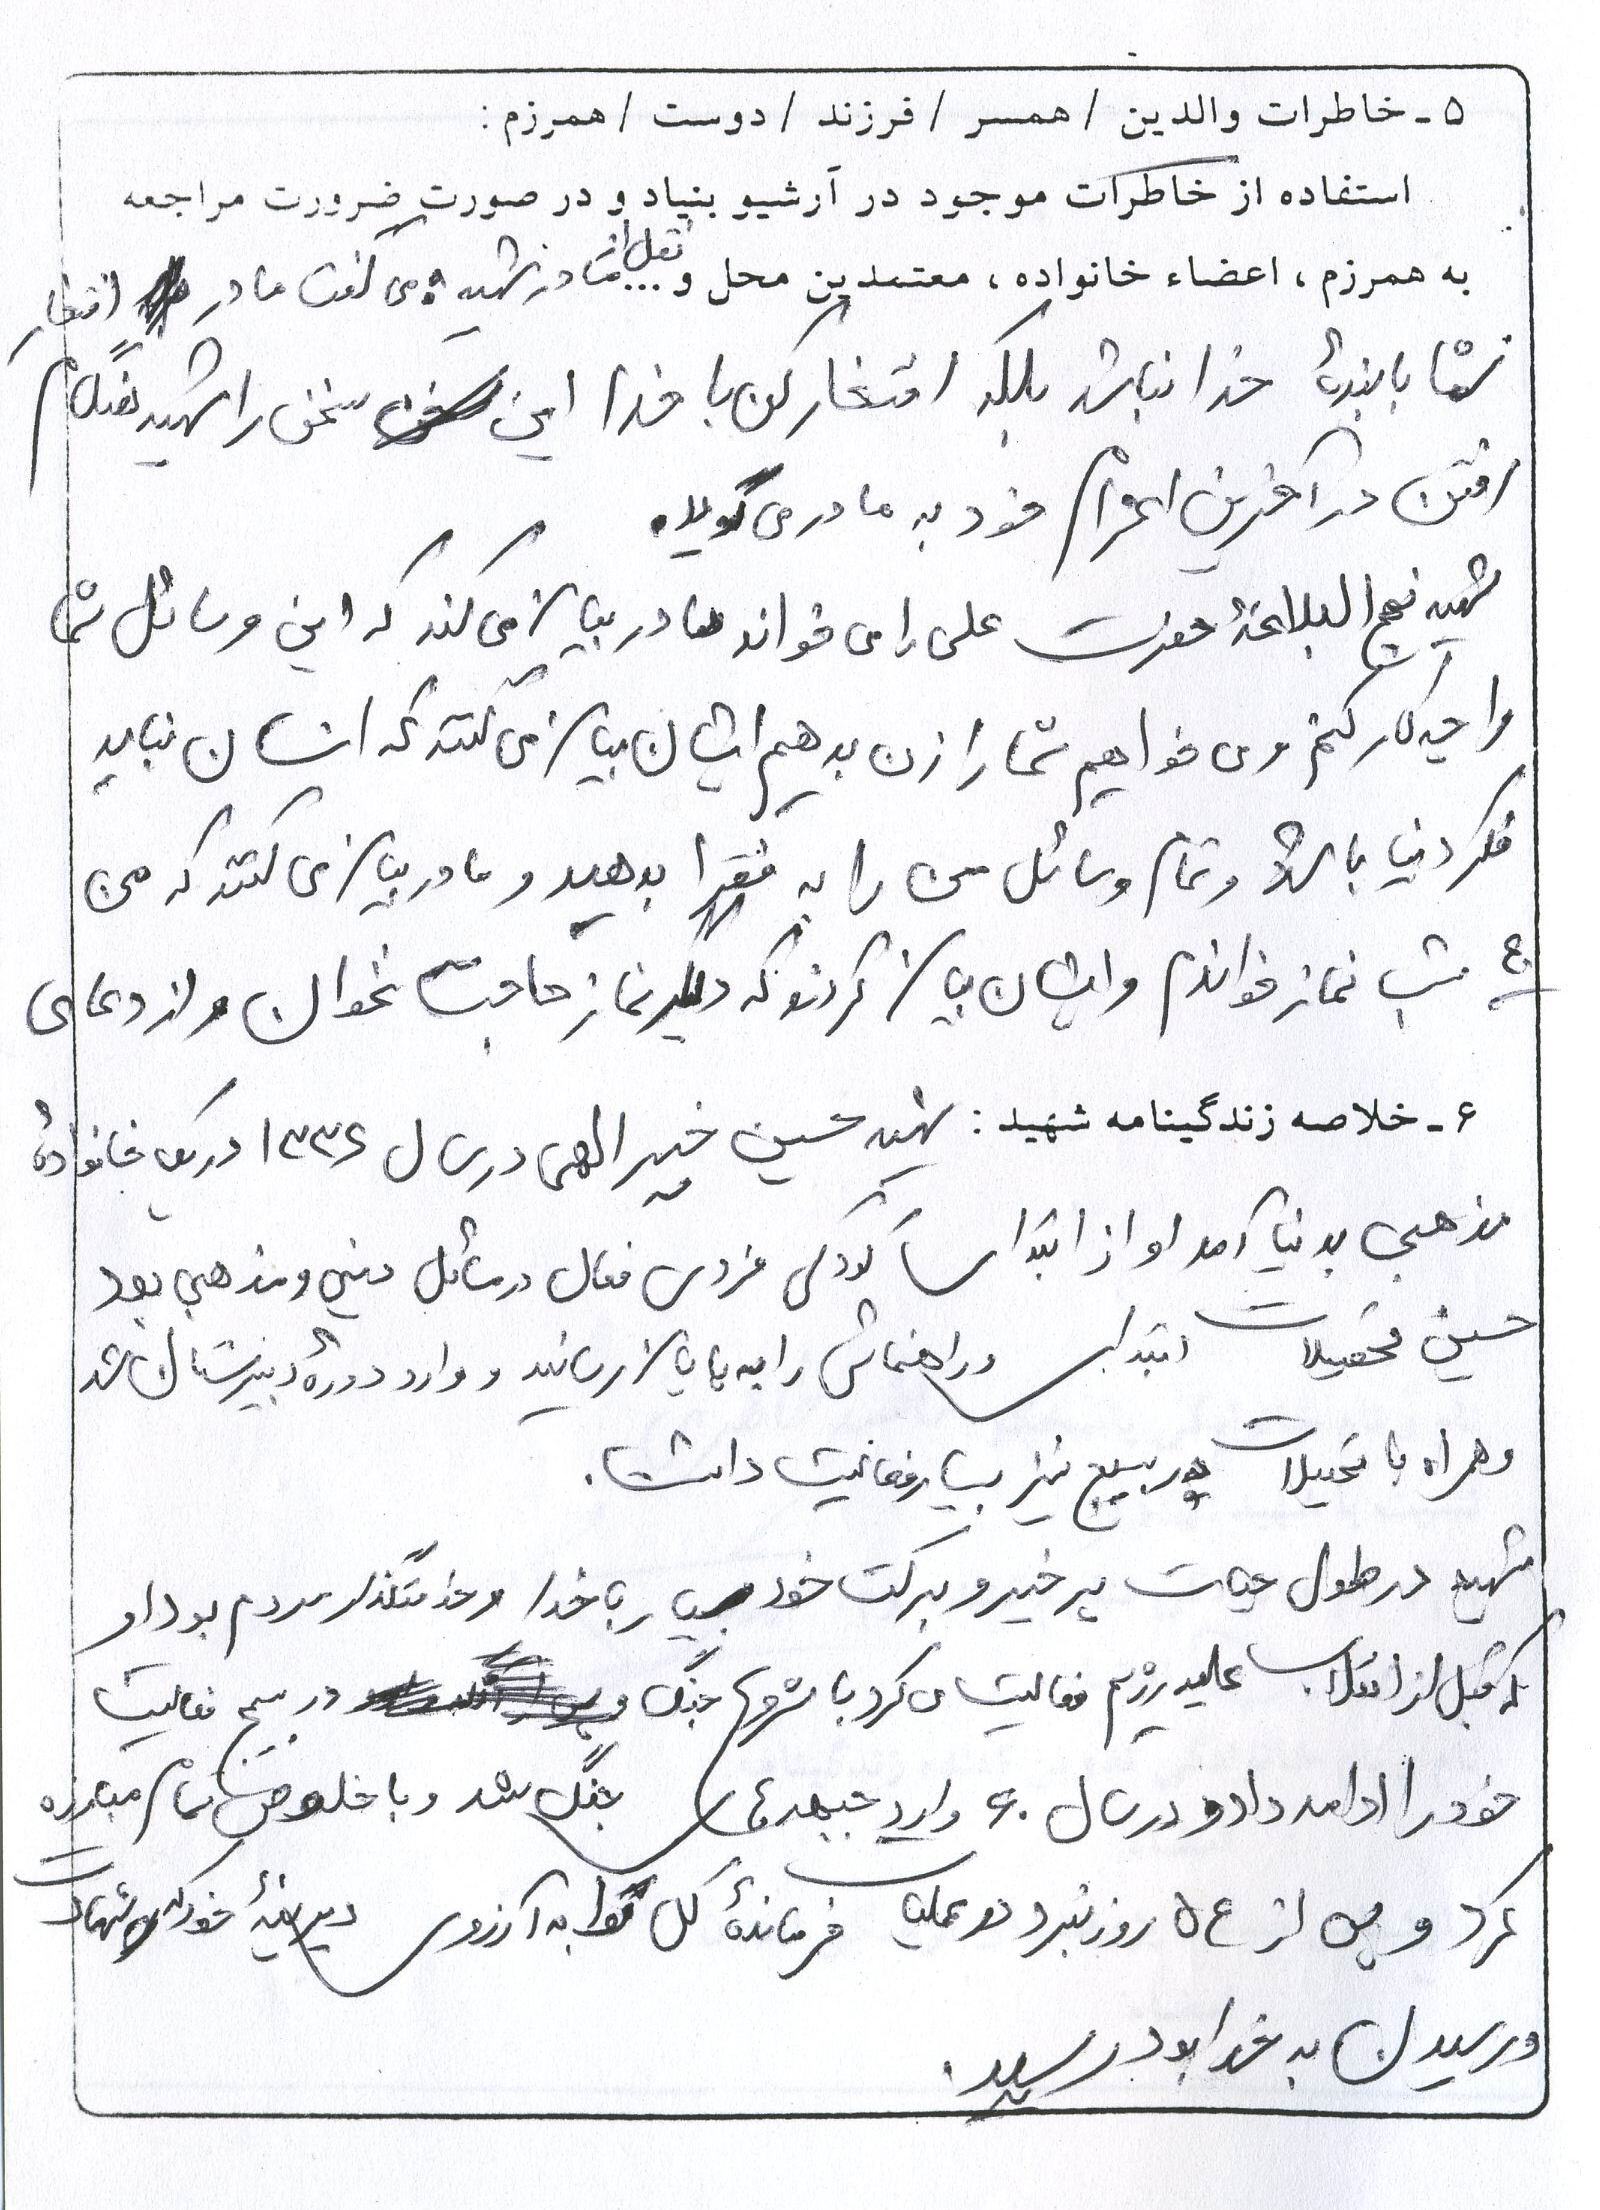 ۵ - خاطرات والدین / همسر / فرزند / دوست / همرزم :
استفاده از خاطرات موجود در آرشیو بنیاد و در صورت ضرورت مراجعه
به همرزم ، اعضاء خانواده ، معتمدین محل و ... نقل از مادر شهید می گفت مادر افتخار
شما با بندهٔ خدا نباشد بلکه افتخار کن با خدا این سخن را شهید هنگام
رفتن در آخرین اعزام خود به مادر می گوید.
شهید نهج البلاغهٔ حضرت علی را می خواند مادر بیان می کند که این وسائل شما
را چه کار کنم و می خواهیم شما را زن بدهیم ایشان بیان می کنند که انسان نباید
فکر دنیا باشد و تمام وسائل من را به فقرا بدهید و مادر بیان می کنند که من
۴۰ شب نماز خواندم و ایشان بیان کردند که دیگر نماز حاجت نخوان و از دعای
۶ - خلاصه زندگینامه شهید : شهید حسین خیرالهی در سال ۱۳۳۶ در یک خانوادهٔ
مذهبی بدنیا آمد او از ابتدای کودکی فردی فعال در مسائل دینی و مذهبی بود
حسین تحصیلات ابتدایی و راهنمائی را به پایان رسانید و وارد دورهٔ دبیرستان شد
و همراه با تحصیلات در بسیج نیز بسیار فعالیت داشت.
شهید در طول حیات پر خیر و برکت خود بسیار با خدا و خدمتگذار مردم بود او
که قبل از انقلاب علیه رژیم فعالیت می کرد با شروع جنگ در بسیج فعالیت
خود را ادامه داد و در سال ۶۰ وارد جبهه های جنگ شد و با خلوص تمام مبارزه
کرد و پس از ۵۴ روز نبرد در عملیات فرماندهٔ کل قوا به آرزوی دیرینهٔ خود که شهادت
و رسیدن به خدا بود رسید.